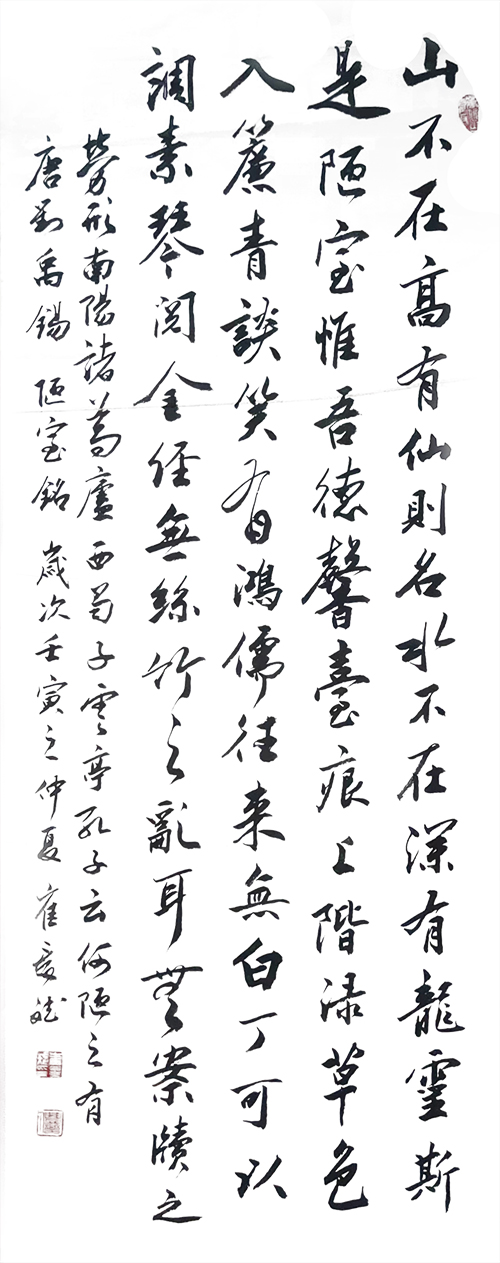 山不在高有仙則名水不在深有龍靈斯
是陋室惟吾德馨臺痕上階淥草色
入簾青談笑有鴻儒往來無白丁可以
調素琴閱金經無絲竹之亂耳無案牘之
勞形南陽諸葛廬西蜀子雲亭孔子云何陋之有
唐劉禹錫 陋室銘 歲次壬寅之仲夏 崔